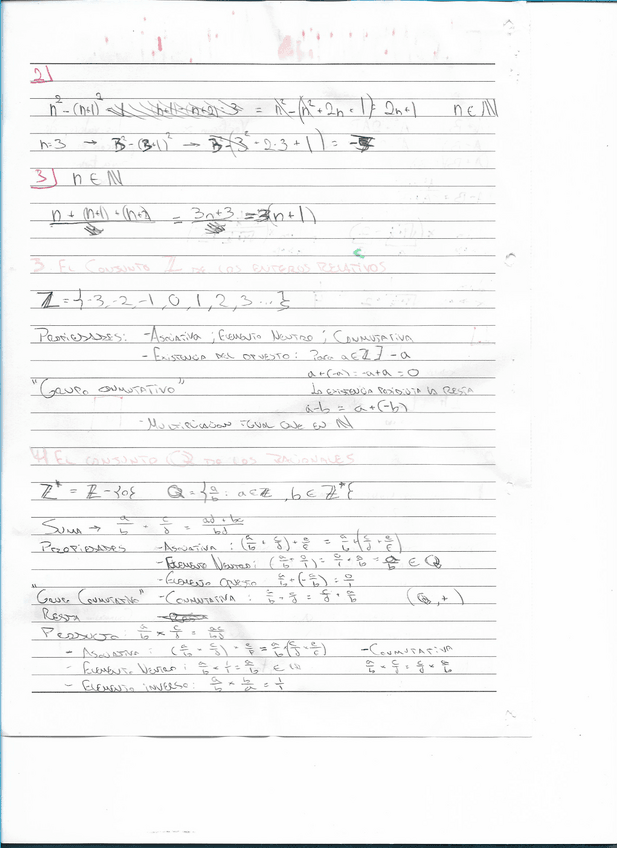 2)
n² - (n+1)² = n² - (n² + 2n + 1) = 2n+1 n ∈ ℕ
n=3 → 3² - (3+1)² → 3² - (3² - 2·3 + 1) =
3) n ∈ ℕ
n + (n+1) + (n+2) = 3n+3 = 3(n+1)
3 El conjunto ℤ de los enteros relativos
ℤ = {-3, -2, -1, 0, 1, 2, 3 ...}
Propiedades: - Asociativa ; Elemento Neutro ; Conmutativa
- Existencia del opuesto: Para a ∈ ℤ ∃ -a
a + (-a) = -a + a = 0
"Grupo conmutativo" La existencia la resta
a-b = a + (-b)
- Multiplicacion igual que en ℕ
4 El conjunto ℚ de los racionales
ℤ* = ℤ - {0} ℚ = {a/b : a ∈ ℤ, b ∈ ℤ*}
Suma → a/b + c/d = ad + bc / bd
Propiedades - Asociativa : (a/b + c/d) + e/f = a/b + (c/d + e/f)
- Elemento Neutro : (a/b + 0/1) = 0/1 + a/b = a/b ∈ ℚ
- Elemento opuesto a/b + (-a/b) = 0/1
"Grupo Conmutativo" - Conmutativa : a/b + c/d = c/d + a/b (ℚ, +)
Resta
Producto : a/b × c/d = ac/bd
- Asociativa : (a/b · c/d) · e/f = a/b · (c/d · e/f) - Conmutativa
- Elemento Neutro : a/b × 1 = a/b ∈ a/b × c/d = c/d × a/b
- Elemento inverso : a/b × b/a = 1/1